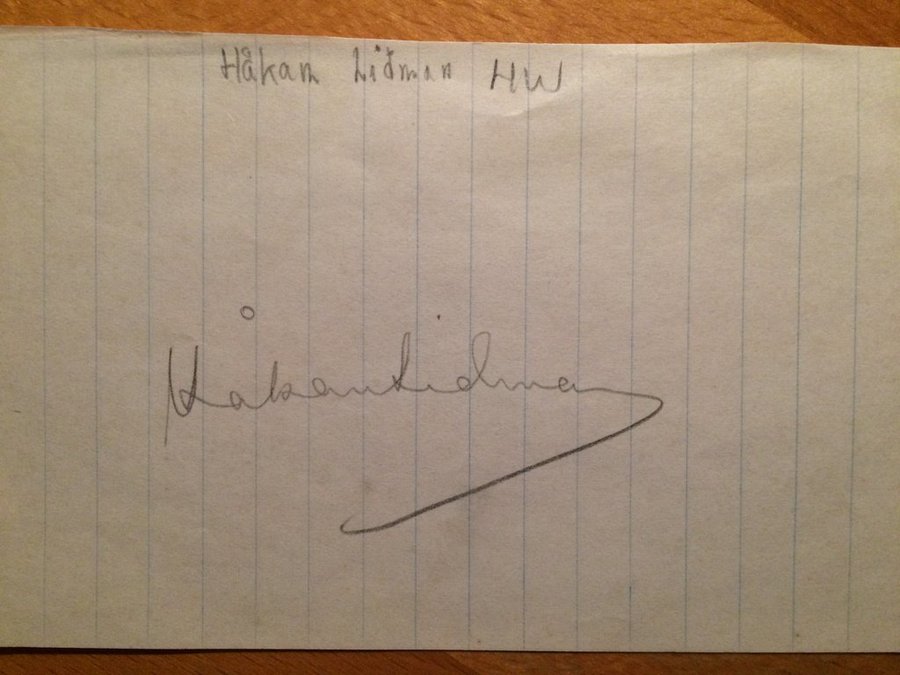 Håkan Lidman HW
Håkan Lidman